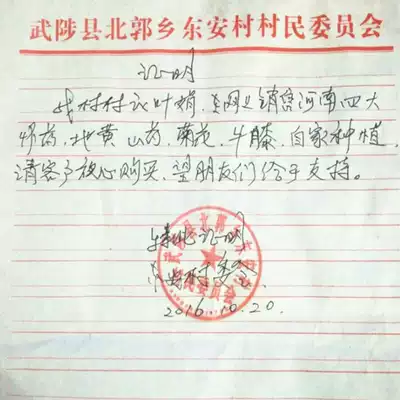 武陟县北郭乡东安村村民委员会
证明
我村村议叶娟,在网上销售河南四大
怀药,地黄 山药、菊花、牛膝,自家种植,
请客户放心购买,望朋友们给予支持。
特此证明
东安村村委会
2016.10.20.